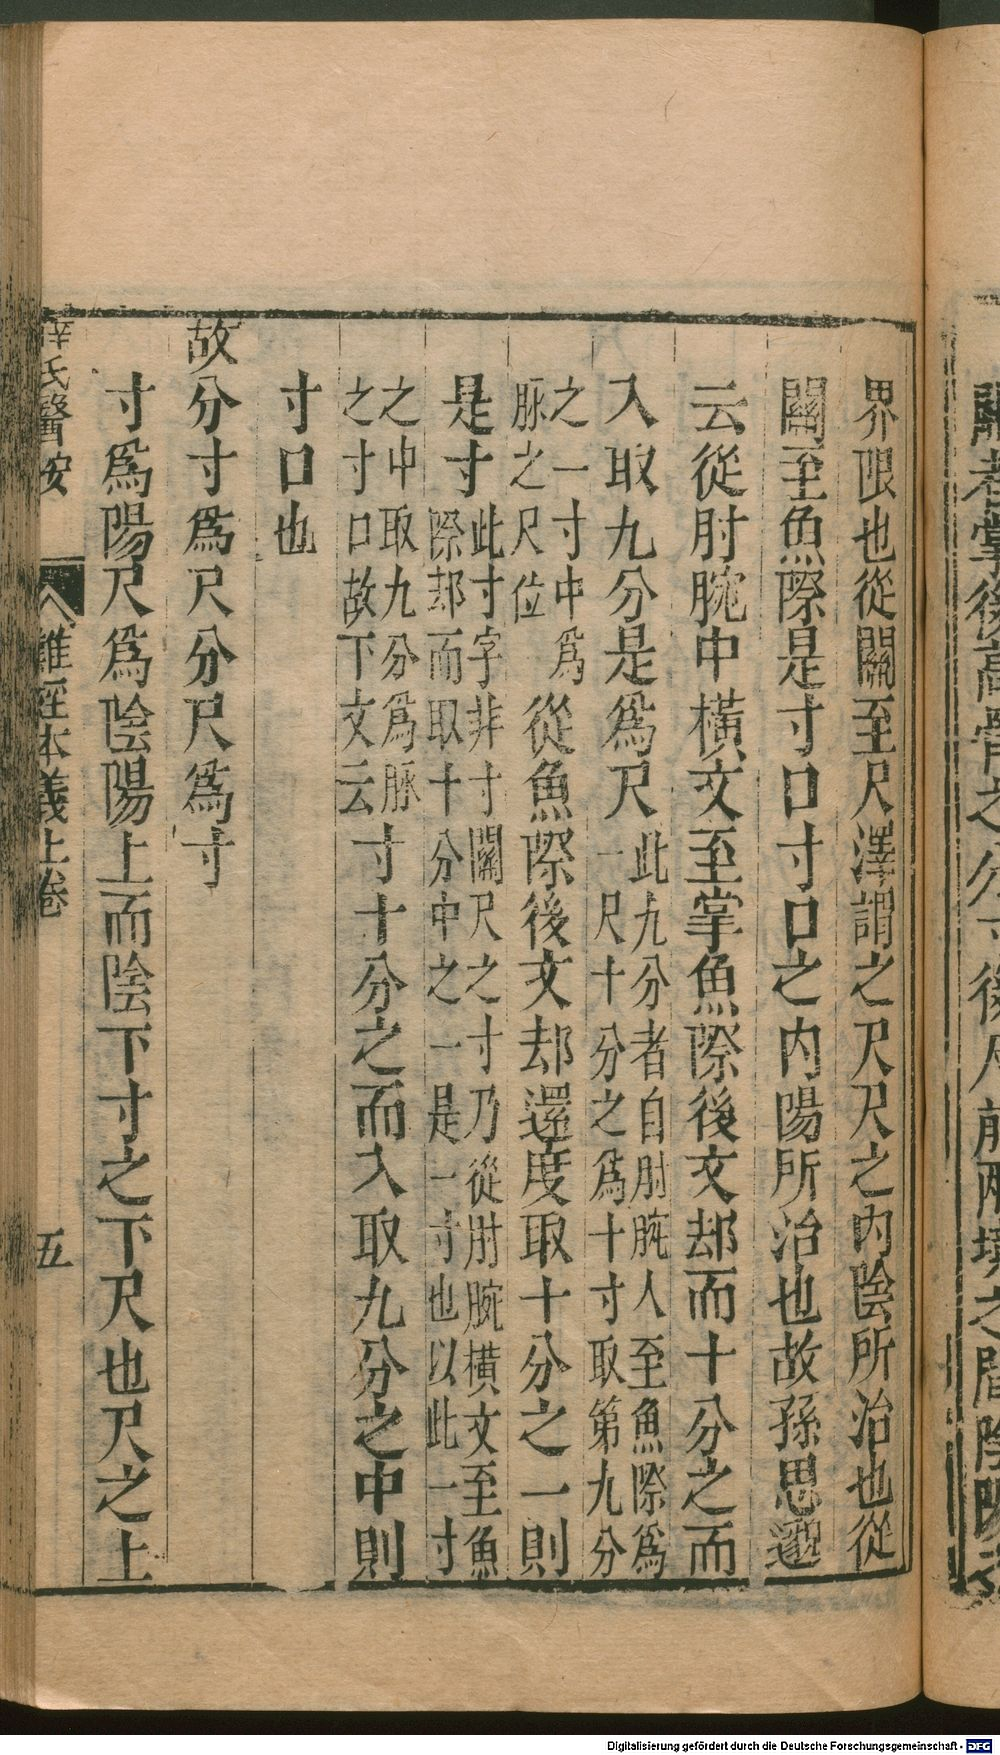 界限也從關至尺澤謂之尺尺之內陰所治也從
關至魚際是寸口寸口之內陽所治也故孫思邈
云從肘腕中橫文至掌魚際後文却而十分之而
入取九分是爲尺
此九分者自肘腕入至魚際爲
一尺十分之爲十寸取第九分
之一寸中爲
脉之尺位
從魚際後文却還度取十分之一則
是寸
此寸字非寸關尺之寸乃從肘腕橫文至魚
際却而取十分中之一是一寸也以此一寸
之中取九分爲脉
之寸口故下文云
寸十分之而入取九分之中則
寸口也
故分寸爲尺分尺爲寸
寸爲陽尺爲陰陽上而陰下寸之下尺也尺之上
薛氏醫按
難經本義上卷
五
掌後高骨之
後
前兩境之間陰陽
Digitalisierung gefördert durch die Deutsche Forschungsgemeinschaft - DFG